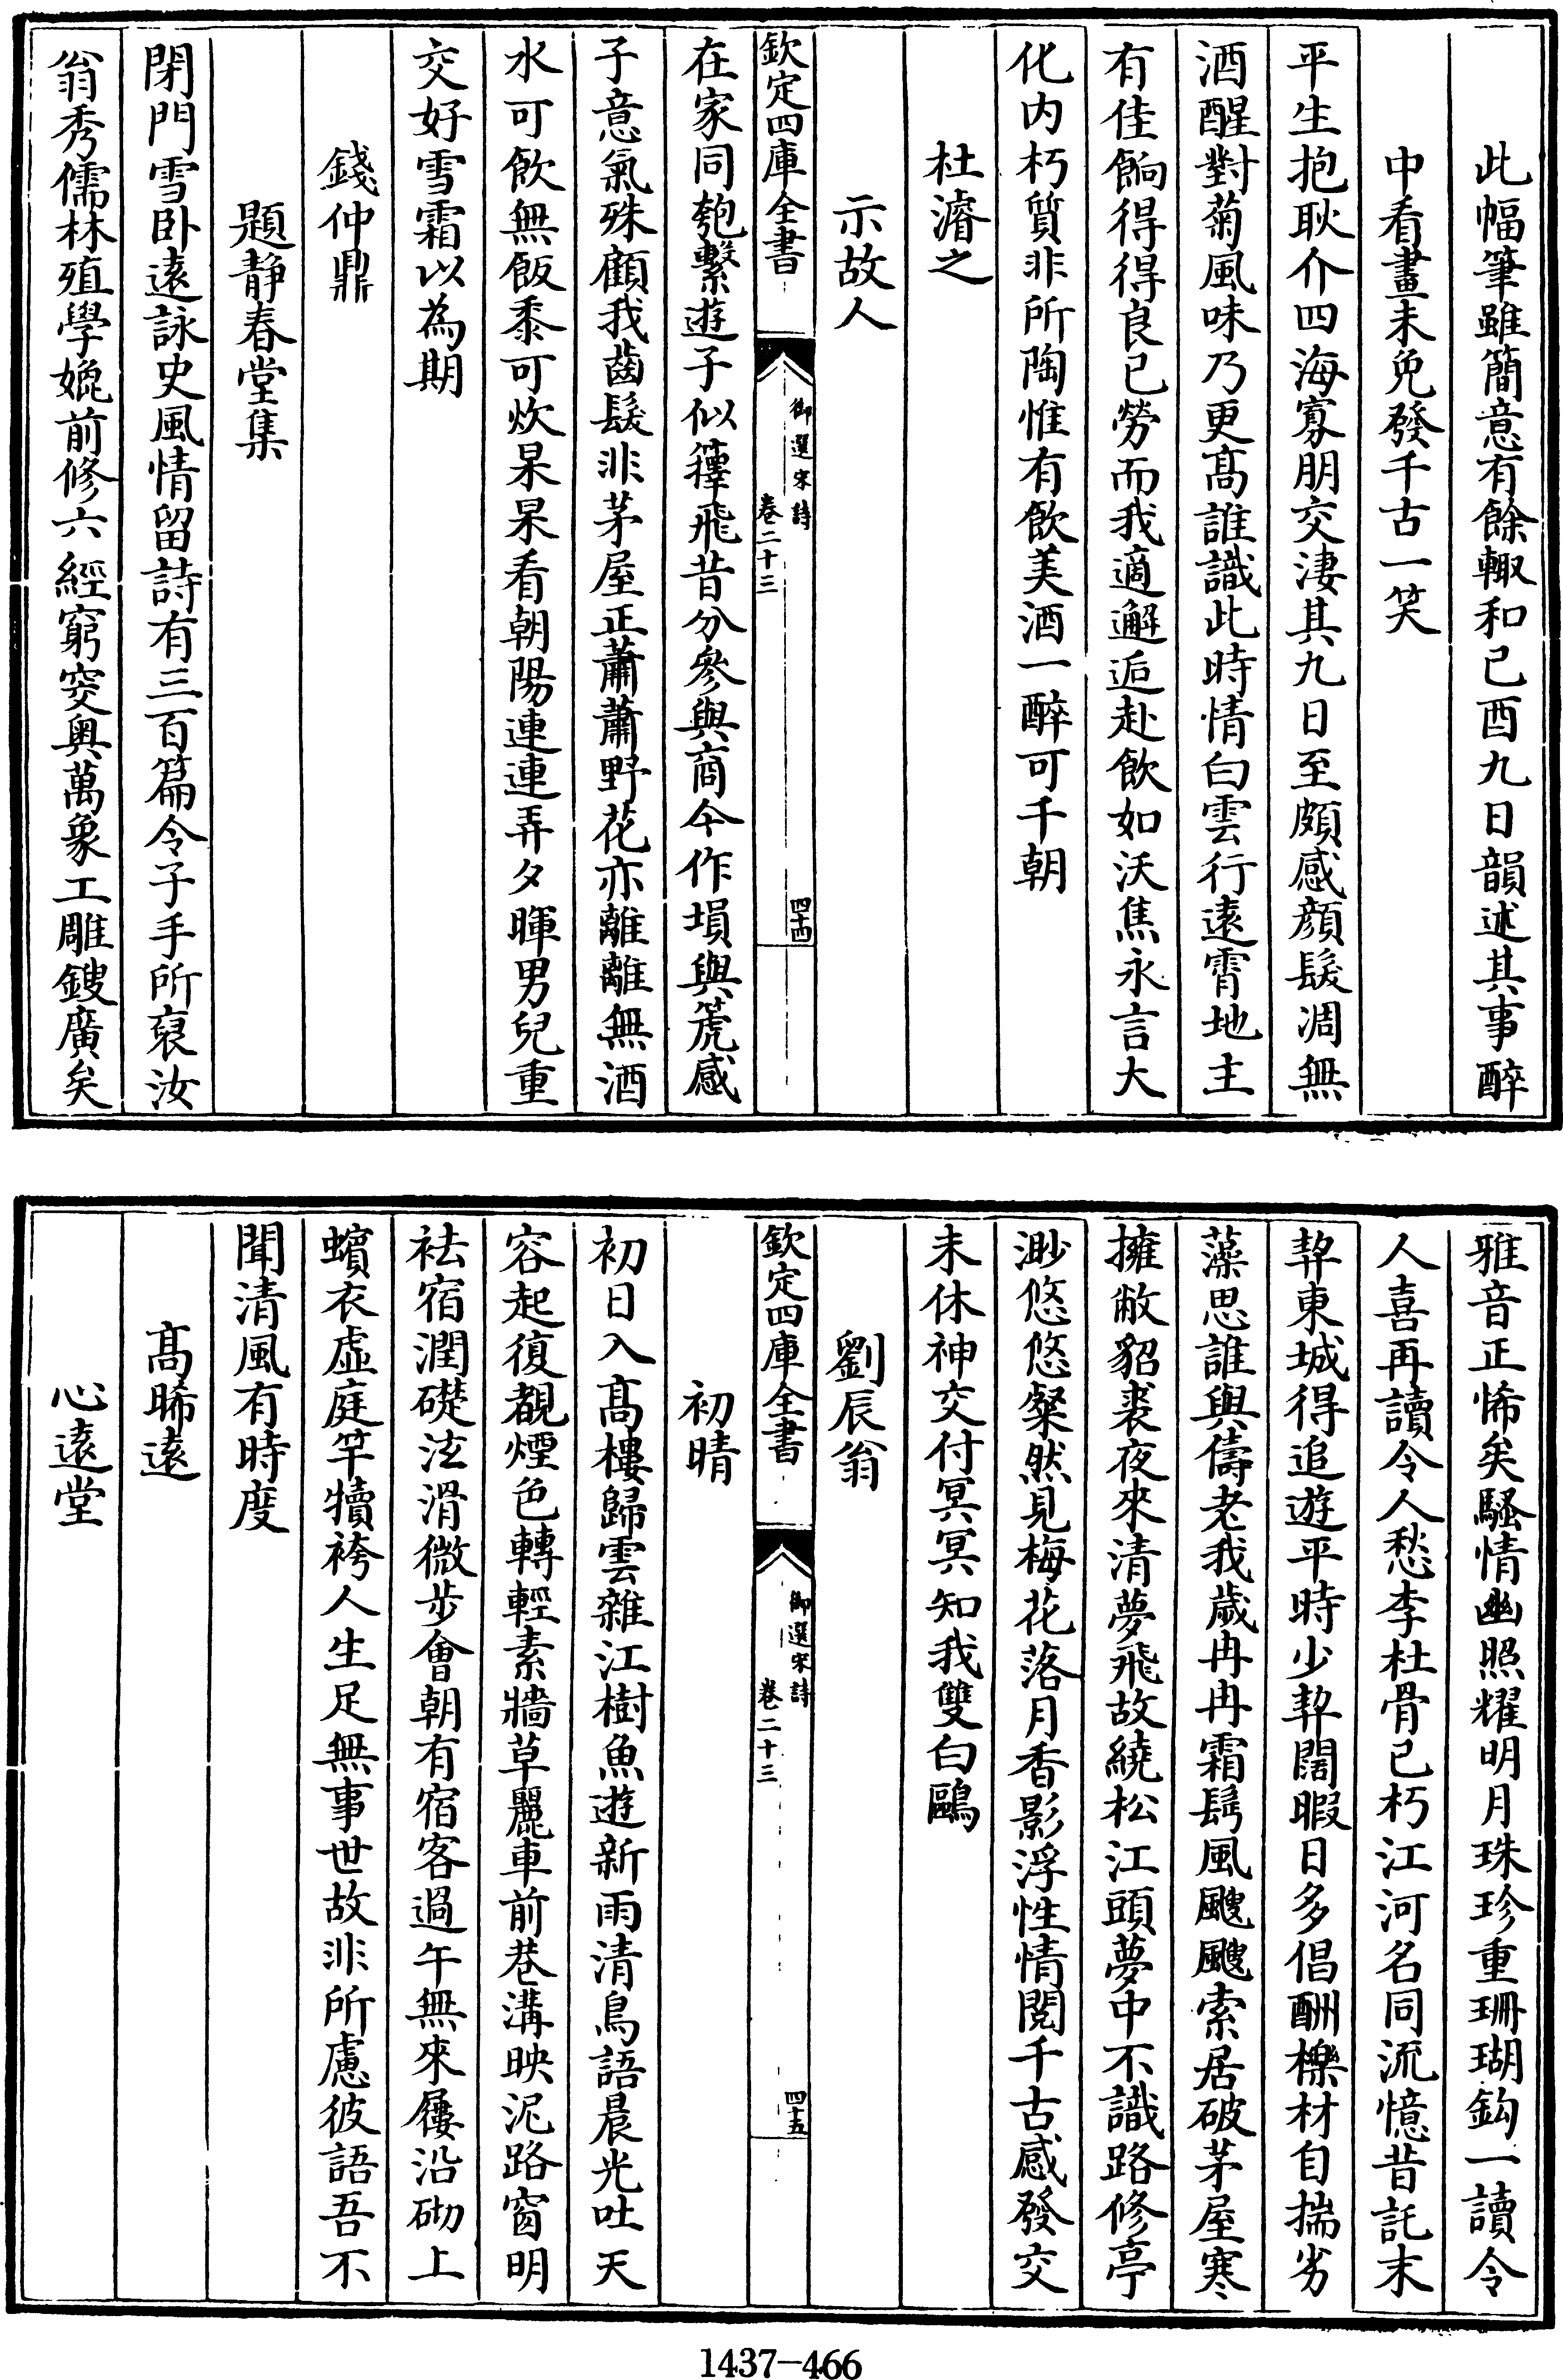 此幅筆雖簡意有餘輙和己酉九日韻述其事醉
中看畫未免發千古一笑
平生抱耿介四海寡朋交淒其九日至頗感顔髮凋無
酒醒對菊風味乃更髙誰識此時情白雲行遠霄地主
有佳餉得得良已勞而我適邂逅赴飲如沃焦永言大
化内朽質非所陶惟有飲美酒一醉可千朝
杜濬之
示故人
欽定四庫全書
御選宋詩
卷二十三
四十四
在家同匏繫遊子似蘀飛昔分參與商今作塤與篪感
子意氣殊顧我齒髮非茅屋正蕭蕭野花亦離離無酒
水可飲無飯黍可炊杲杲看朝陽連連弄夕暉男兒重
交好雪霜以為期
錢仲鼎
題静春堂集
閉門雪卧遠詠史風情留詩有三百篇令子手所裒汝
翁秀儒林殖學媲前修六經窮突奥萬象工雕鎪廣矣
雅音正悕矣騷情幽照耀明月珠珍重珊瑚鈎一讀令
人喜再讀令人愁李杜骨已朽江河名同流憶昔託末
契東城得追遊平時少契闊暇日多倡酬櫟材自揣劣
藻思誰與儔老我歲冉冉霜髩風颼颼索居破茅屋寒
擁敝貂裘夜來清夢飛故繞松江頭夢中不識路修亭
渺悠悠粲然見梅花落月香影浮性情閱千古感發交
未休神交付冥冥知我雙白鷗
劉辰翁
欽定四庫全書
御選宋詩
卷二十三
四十五
初晴
初日入髙樓歸雲雜江樹魚遊新雨清鳥語晨光吐天
容起復覩煙色轉輕素牆草麗車前巷溝映泥路窗明
袪宿潤礎泫滑微步會朝有宿客過午無來屨沿砌上
蠙衣虛庭竿犢袴人生足無事世故非所慮彼語吾不
聞清風有時度
髙晞遠
心遠堂
1437-466